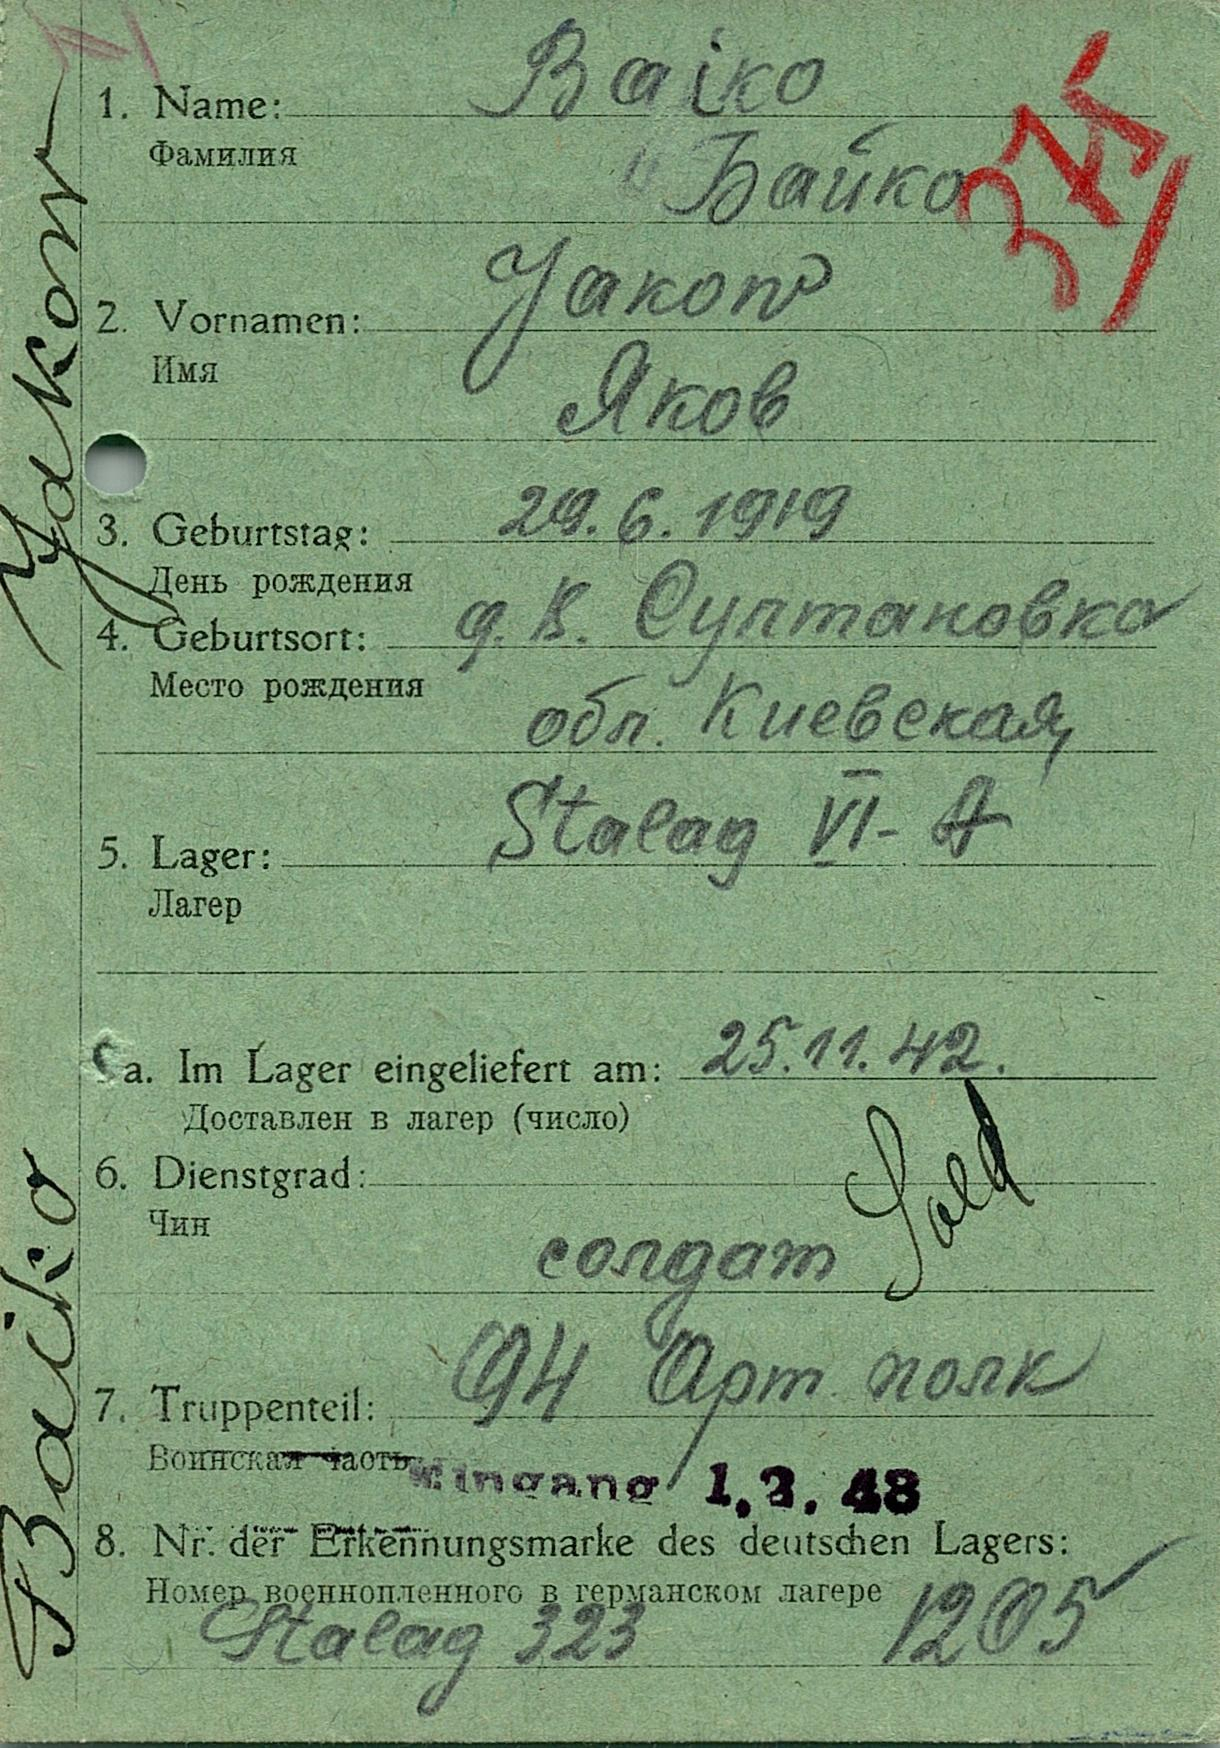 1. Name: Baiko
Фамилия
" Байко
375/
2. Vornamen: Jакоп
Имя
Яков
3. Geburtstag: 29.6.1919
День рождения
4. Geburtsort: д. В. Султановка
Место рождения
обл. Киевская,
5. Lager: Stalag VI-A
Лагер
5a. Im Lager eingeliefert am: 25.11.42.
Доставлен в лагер (число)
6. Dienstgrad: Sold
Чин
солдат
7. Truppenteil: 94 Арт. полк
Воинская часть
Eingang 1.3.43
8. Nr. der Erkennungsmarke des deutschen Lagers:
Номер военнопленного в германском лагере
Stalag 323 1205
Baiko Jakow